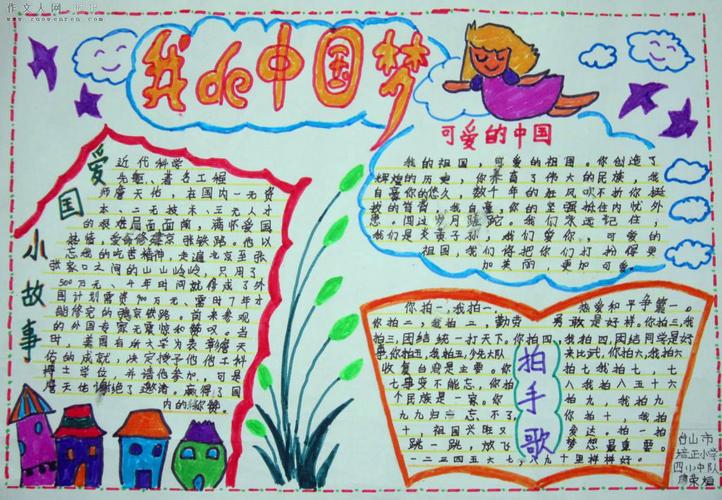 作文人网
www.zuowenren.com
我de中国梦
可爱的中国
爱国小故事
近代科学
先驱、著名工程
师詹天佑，在国内一无资
本、二无技术、三无人才
的艰难局面面前，满怀爱国
热情，受命修建京张铁路。他以
忘我的吃苦精神，走遍北京至张
张家口之间的山山岭岭，只用了
500万元、4年时间就修成了外
国计划需资900万元、需时7年才
能修完的铁路，前来参观
的外国专家无震惊和赞叹。当
时，美国有所大学为表彰詹天
佑的成就，决定授予他工科
博士学位，并请他参加，可是
詹天佑谢绝了邀请，赢得了国
内的称赞
我的祖国，可爱的祖国。你创造了
辉煌的历史，你养育了伟大的民族，我
自豪你的悠久，数千年的狂风吹不折你挺
拔的背脊，我自豪，你的坚强，抵住内忧外
患，闯过岁月蹉跎，我们永远记住，
我们是炎黄子孙，我们爱你，可爱的
祖国，我们将把你们打扮得更
加美丽，更加可爱。
拍手歌
你拍一，我拍一，热爱和平争第一。
你拍二，我拍二，勤劳勇敢是好样。你拍三，我
拍三，团结统一打天下。你拍四，我拍四，团结同学是好
事。你拍五，我拍五，少先大队来比武，你拍六，我拍六
收复台府是主要。你拍七我拍七，七
七事变不能忘，你拍八我拍八五十六
个民族是一家。你拍九我拍九
九九归一忘不了，你拍十，我拍
十，祖国兴旺又发达，拍一拍
跳一跳，放飞梦想最重要。
一二三四五六七，八九十里样样好。
台山市
培正小学
四(1)中队